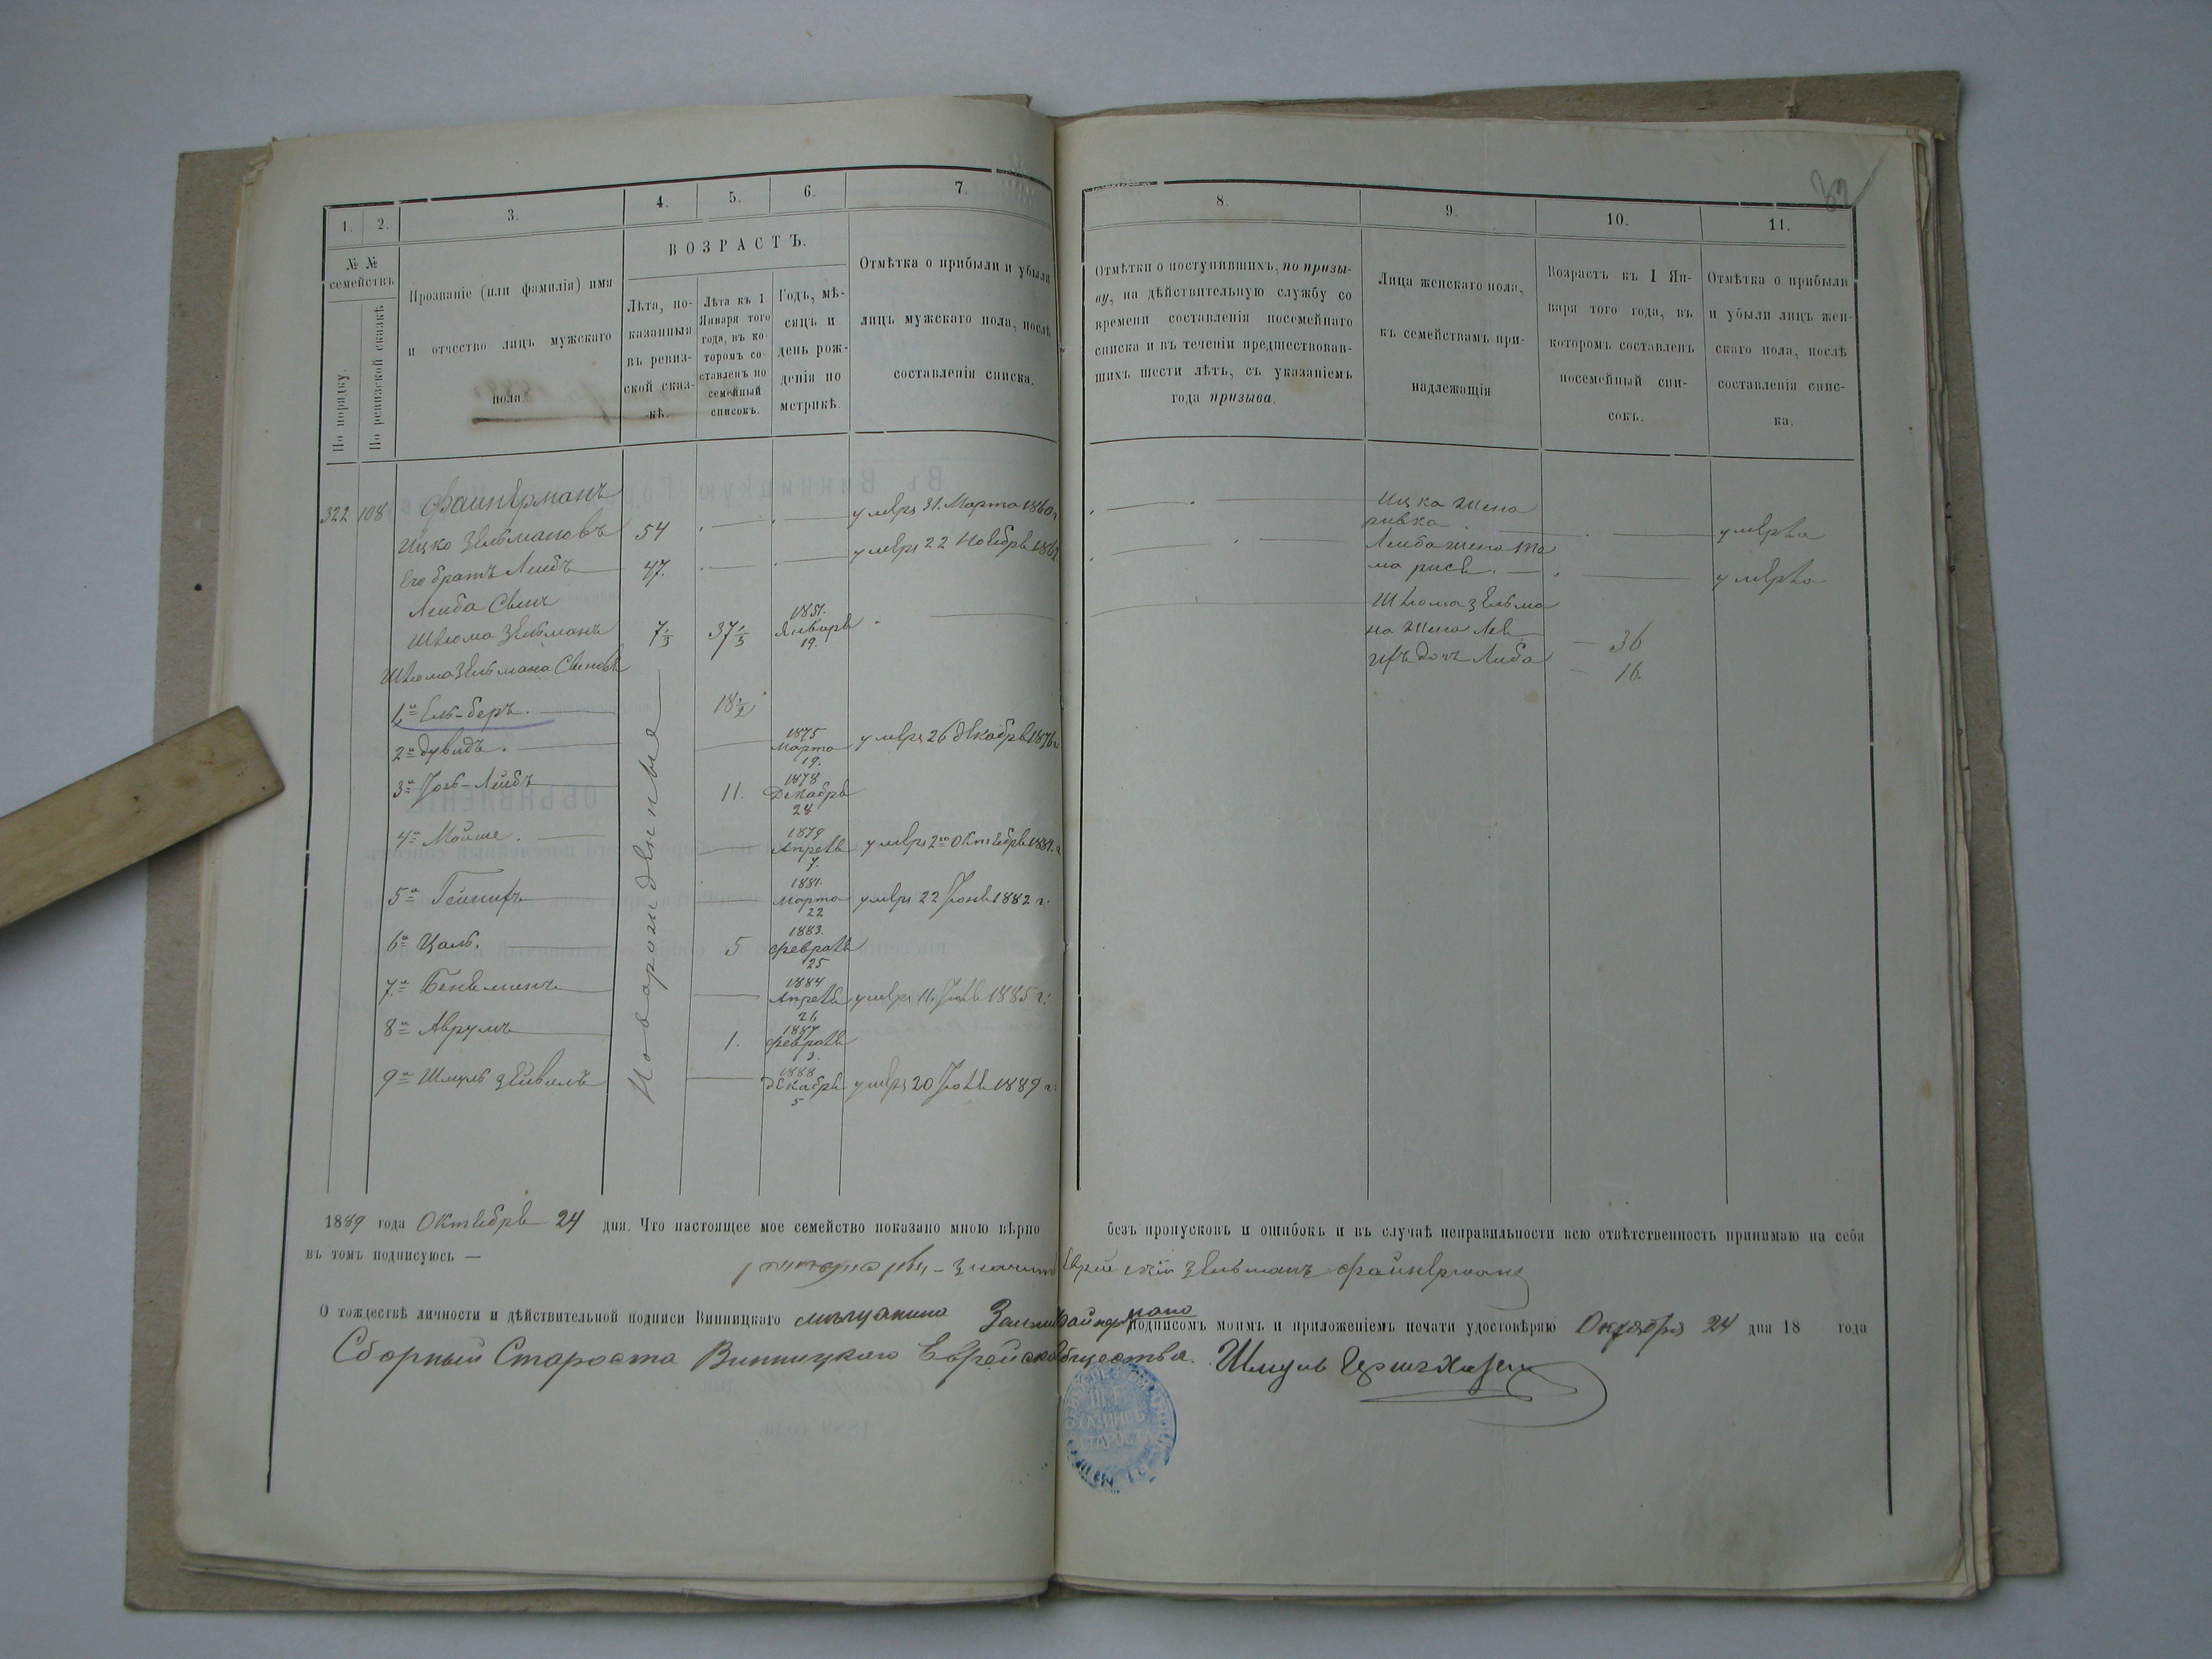 1.
2.
3.
4.
5.
6.
7.
№ №
семействъ
По порядку.
По ревизской сказкѣ
Прозваніе (или фамилія) имя
и отчество лицъ мужскаго
пола.
ВОЗРАСТЪ.
Лѣта, по-
казанныя
въ ревиз-
ской сказ-
-кѣ.
Лѣта къ 1
Января того
года, въ ко-
торомъ со-
ставленъ по
семейный
списокъ.
Годъ, мѣ-
сяцъ и
день рож-
денія по
метрикѣ.
Отмѣтка о прибыли и убыли
лицъ мужскаго пола, послѣ
составленія списка.
322 108 Файнерманъ
Ицко Зельмановъ 54 умеръ 31. Марта 1860 г
Его братъ Лейбъ 47. умеръ 22 Ноебре
Лейба Синъ
Шлома Зельманъ 7 1/3 37 1/3 1851. Январе 19.
Шлома Зельмана Синове
Новорожденные
1й Ель-беръ. 18 1/2
2й Дувидъ. 1875 Марта 19. умеръ 26 декабре 1876 г
3й Іось-Лейбъ 11. 1878 Декабре 24
4й Мойше. 1879 Апреле 7. умеръ 2го Октебре 1881. г
5й 1881. Марта 22 умеръ 22 Іюне 1882 г:
6й Цаль. 5 1883. Феврале 25
7й Бениминъ 1884 Апреле 26 умеръ 11. Іюле 1885 г:
8й Аврумъ 1. 1887 Феврале 3.
9й Шмуль Зейвель 1888 Декабре 5 умеръ 20 Іюле 1889 г:
8.
9.
10.
11.
Отмѣтки о поступившихъ, по призы-
ву, на дѣйствительную службу со
времени составленія посемейнаго
списка и въ теченіи предшествовав-
шихъ шести лѣтъ, съ указаніемъ
года призыва.
Лица женскаго пола,
къ семействамъ при-
надлежащія
Возрастъ къ 1 Ян-
варя того года, въ
которомъ составленъ
посемейный спи-
сокъ.
Отмѣтка о прибыли
и убыли лицъ жен-
скаго пола, послѣ
составленія спис-
ка.
Ицка жена
ривка умерла
Лейба жена
умерла
Шлома Зельма
на жена 36
ихъ дочъ Либа 16.
1889 года Октебре 24 дня. Что настоящее мое семейство показано мною вѣрно безъ пропусковъ и ошибокъ и въ случаѣ неправильности всю отвѣтственность принимаю на себя
въ томъ подписуюсь —
Зельманъ Файнерманъ
О тождествѣ личности и дѣйствительной подписи Винницкаго мѣщанина подписомъ моимъ и приложеніемъ печати удостовѣряю Октября 24 дня 18 года
Сборный Староста Винницкаго Еврейска Общества. Шмуль